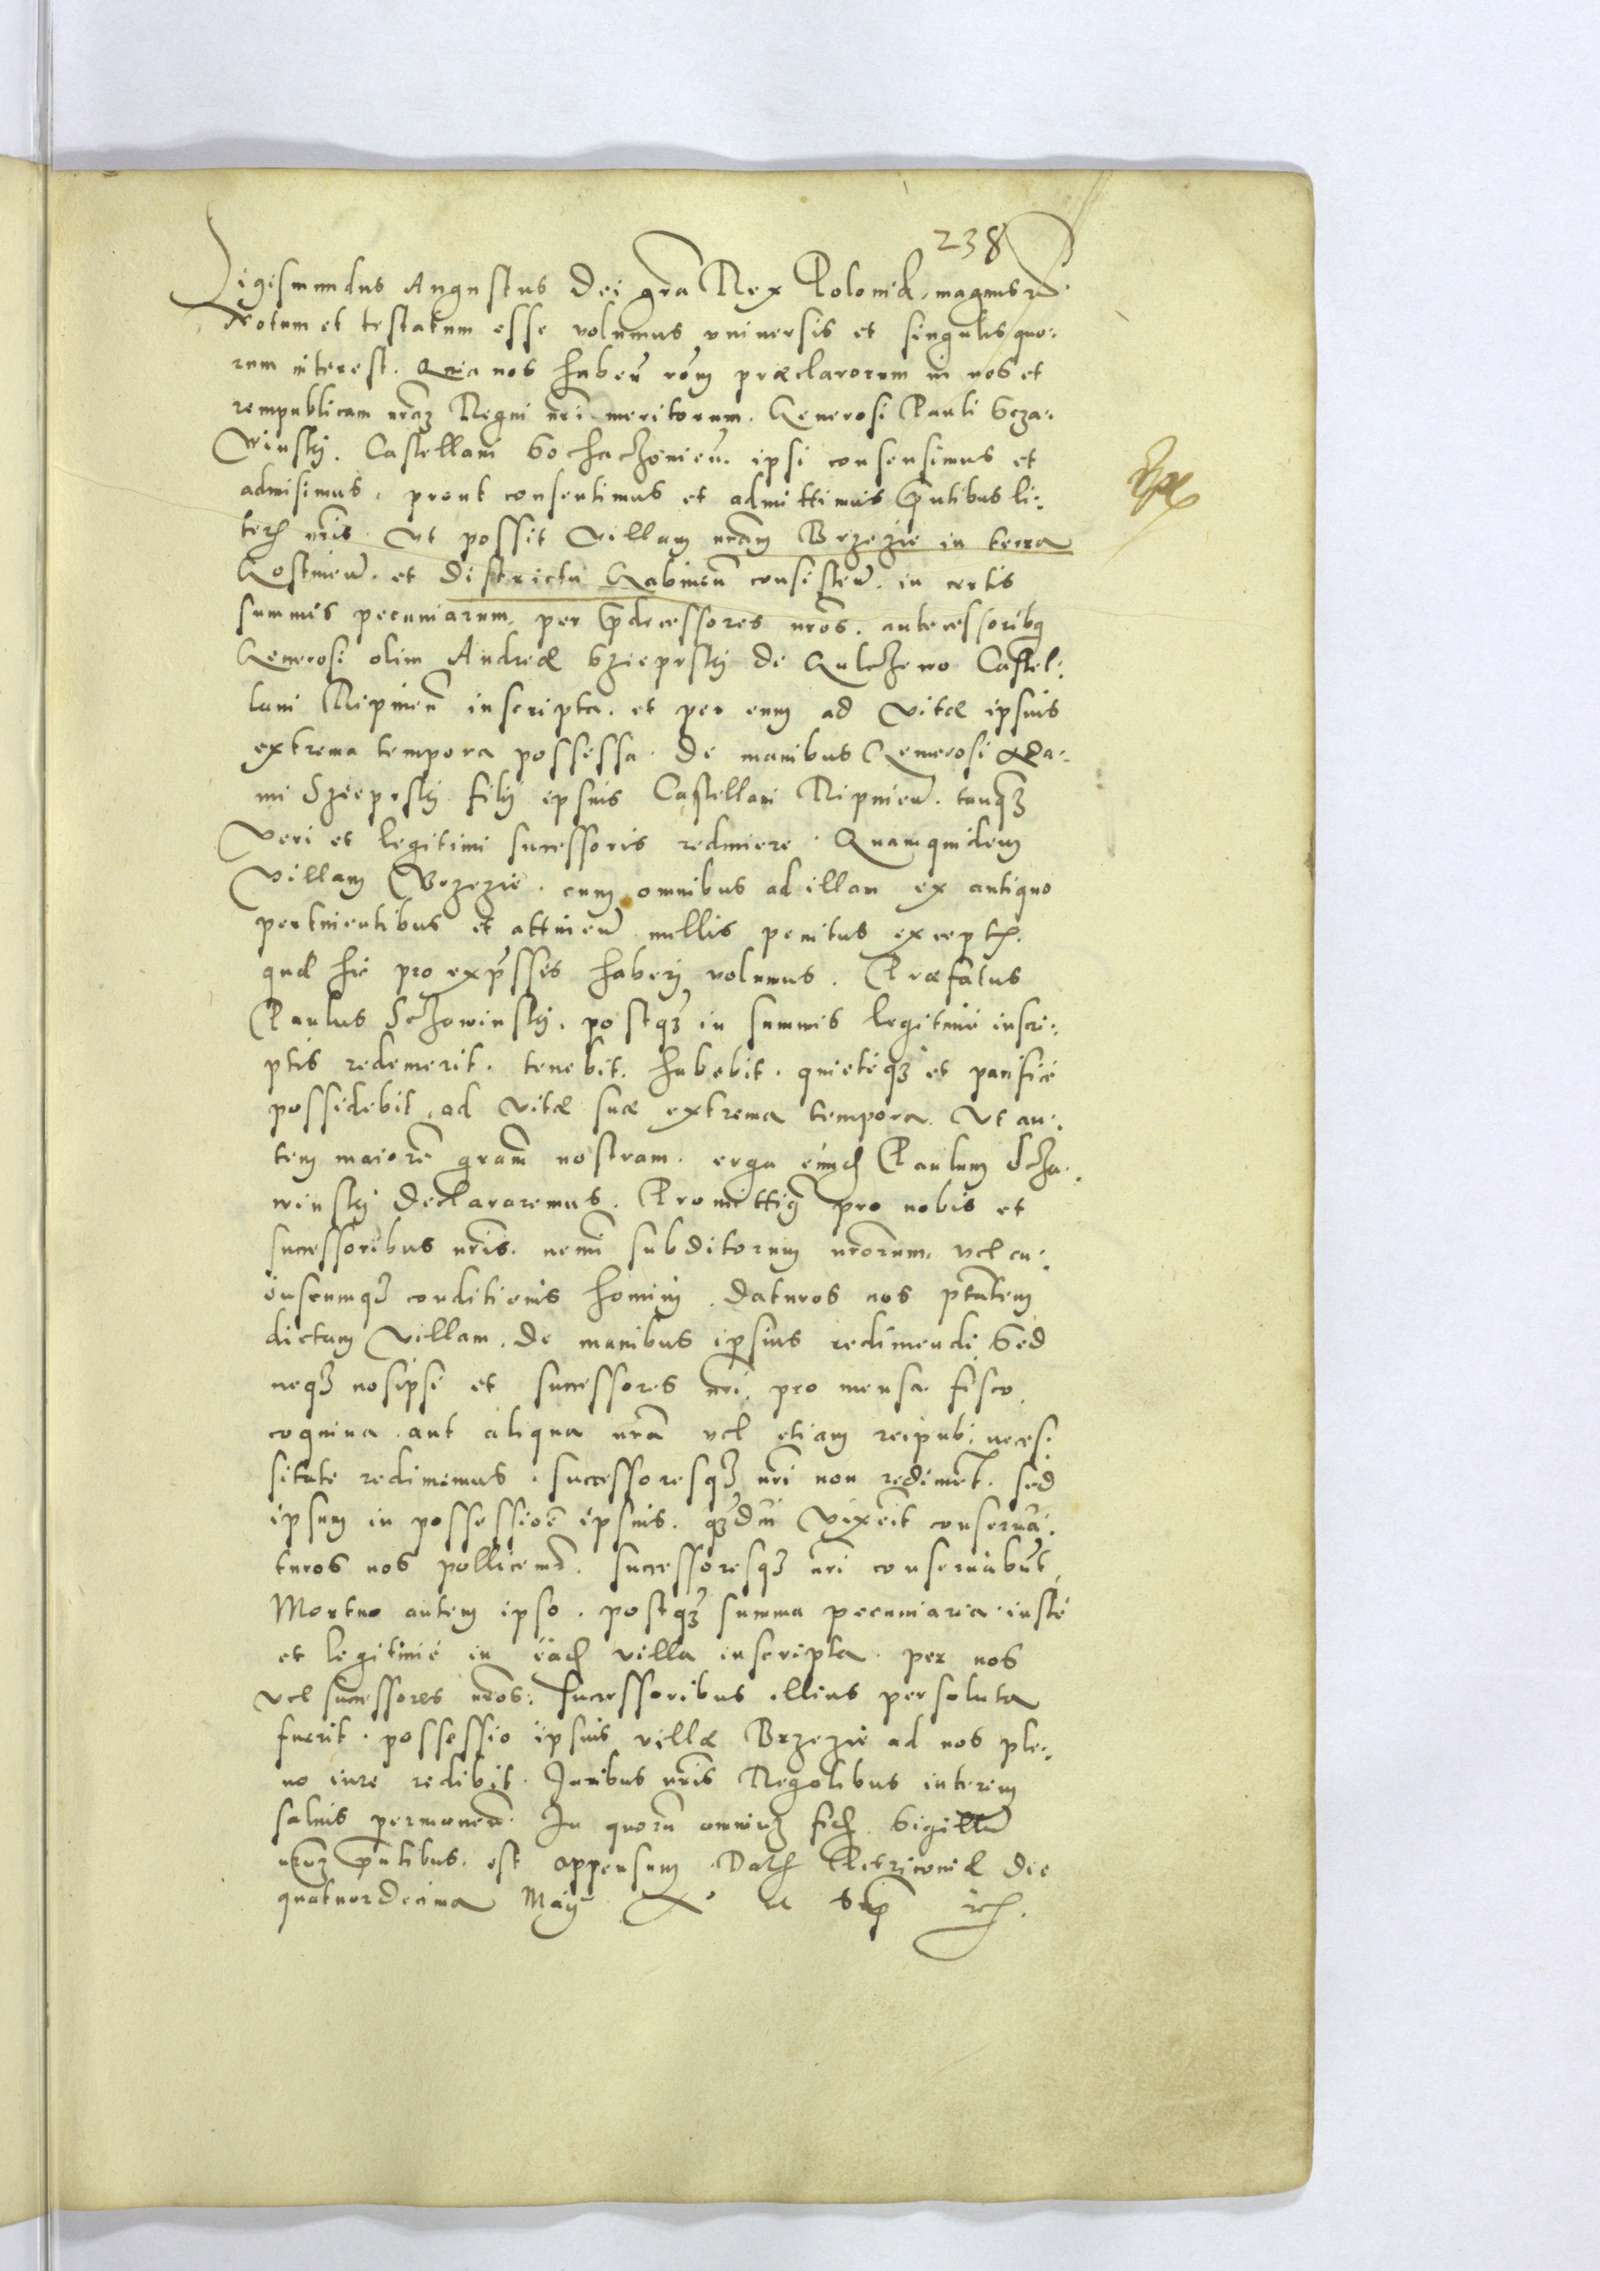 238
Sigismundus Augustus Dei gra Rex Poloniæ, magnus
Notum et testatum esse volumus vniuersis et singulis quo:
rum interest. Quia nos haben rōm præclarorum in nos et
rempublicam nraz Regni nri meritorum. Generosi Pauli Scza:
winskj. Castellani Sochaczouien. ipsi consensimus et
admisimus, prout consentimus et admittimus pntibus li:
teris nris. Vt possit villam nram Brzezie in terra
Gostinen. et districtu Gabinen consisten. in certis
summis pecuniarum, per prdecessores nros. antecessoribq
Generosi olim Andreæ Szieprskj de Gulczewo Castel:
lani Ripinen inscripta. et per eum ad vitæ ipsius
extrema tempora possessa. de manibus Generosi Ada:
mi Szieprskj filij ipsius Castellani Ripinen. tanqz
veri et legitimi successoris redimere. Quamquidem
villam Brzezie. cum omnibus ad illam ex antiquo
pertinentibus et attinen nullis penitus exceptis.
quæ hic pro exprssis haberj volumus. Præfatus
Paulus Sczawinskj. postqz in summis legitimè inscri:
ptis redemerit. tenebit. habebit. quietèqz et pacificè
possidebit, ad vitæ suæ extrema tempora. Vt au:
tem maiorē gram nostram. erga eund Paulum Scza:
winskj declararemus. Promittim pro nobis et
successoribus nris. nemi subditorum nrorum. vel cu:
iuscumqz conditionis homini. daturos nos ptatem
dictam villam. de manibus ipsius redimendi. Sed
neqz nosipsi et successores nri, pro mensa. fisco.
coquina. aut aliqua nra vel etiam reipub: neces:
sitate redimemus. successoresqz nri non rediment. sed
ipsum in possessioē ipsius. qzdiu vixerit conserua:
turos nos pollicemr. successoresqz nri conseruabūt,
Mortuo autem ipso. postqz summa pecuniaria iustè
et legitimè in ead villa inscripta. per nos
vel successores nros. successoribus illius persoluta
fuerit. possessio ipsius villæ Brzezie ad nos ple:
no iure redibit. Juribus nris Regalibus interim
saluis permanen. In quorū omniuz fid. Sigillū
nruz pntibus. est appensum. Dat Petricouiæ die
quatuordecima Maij